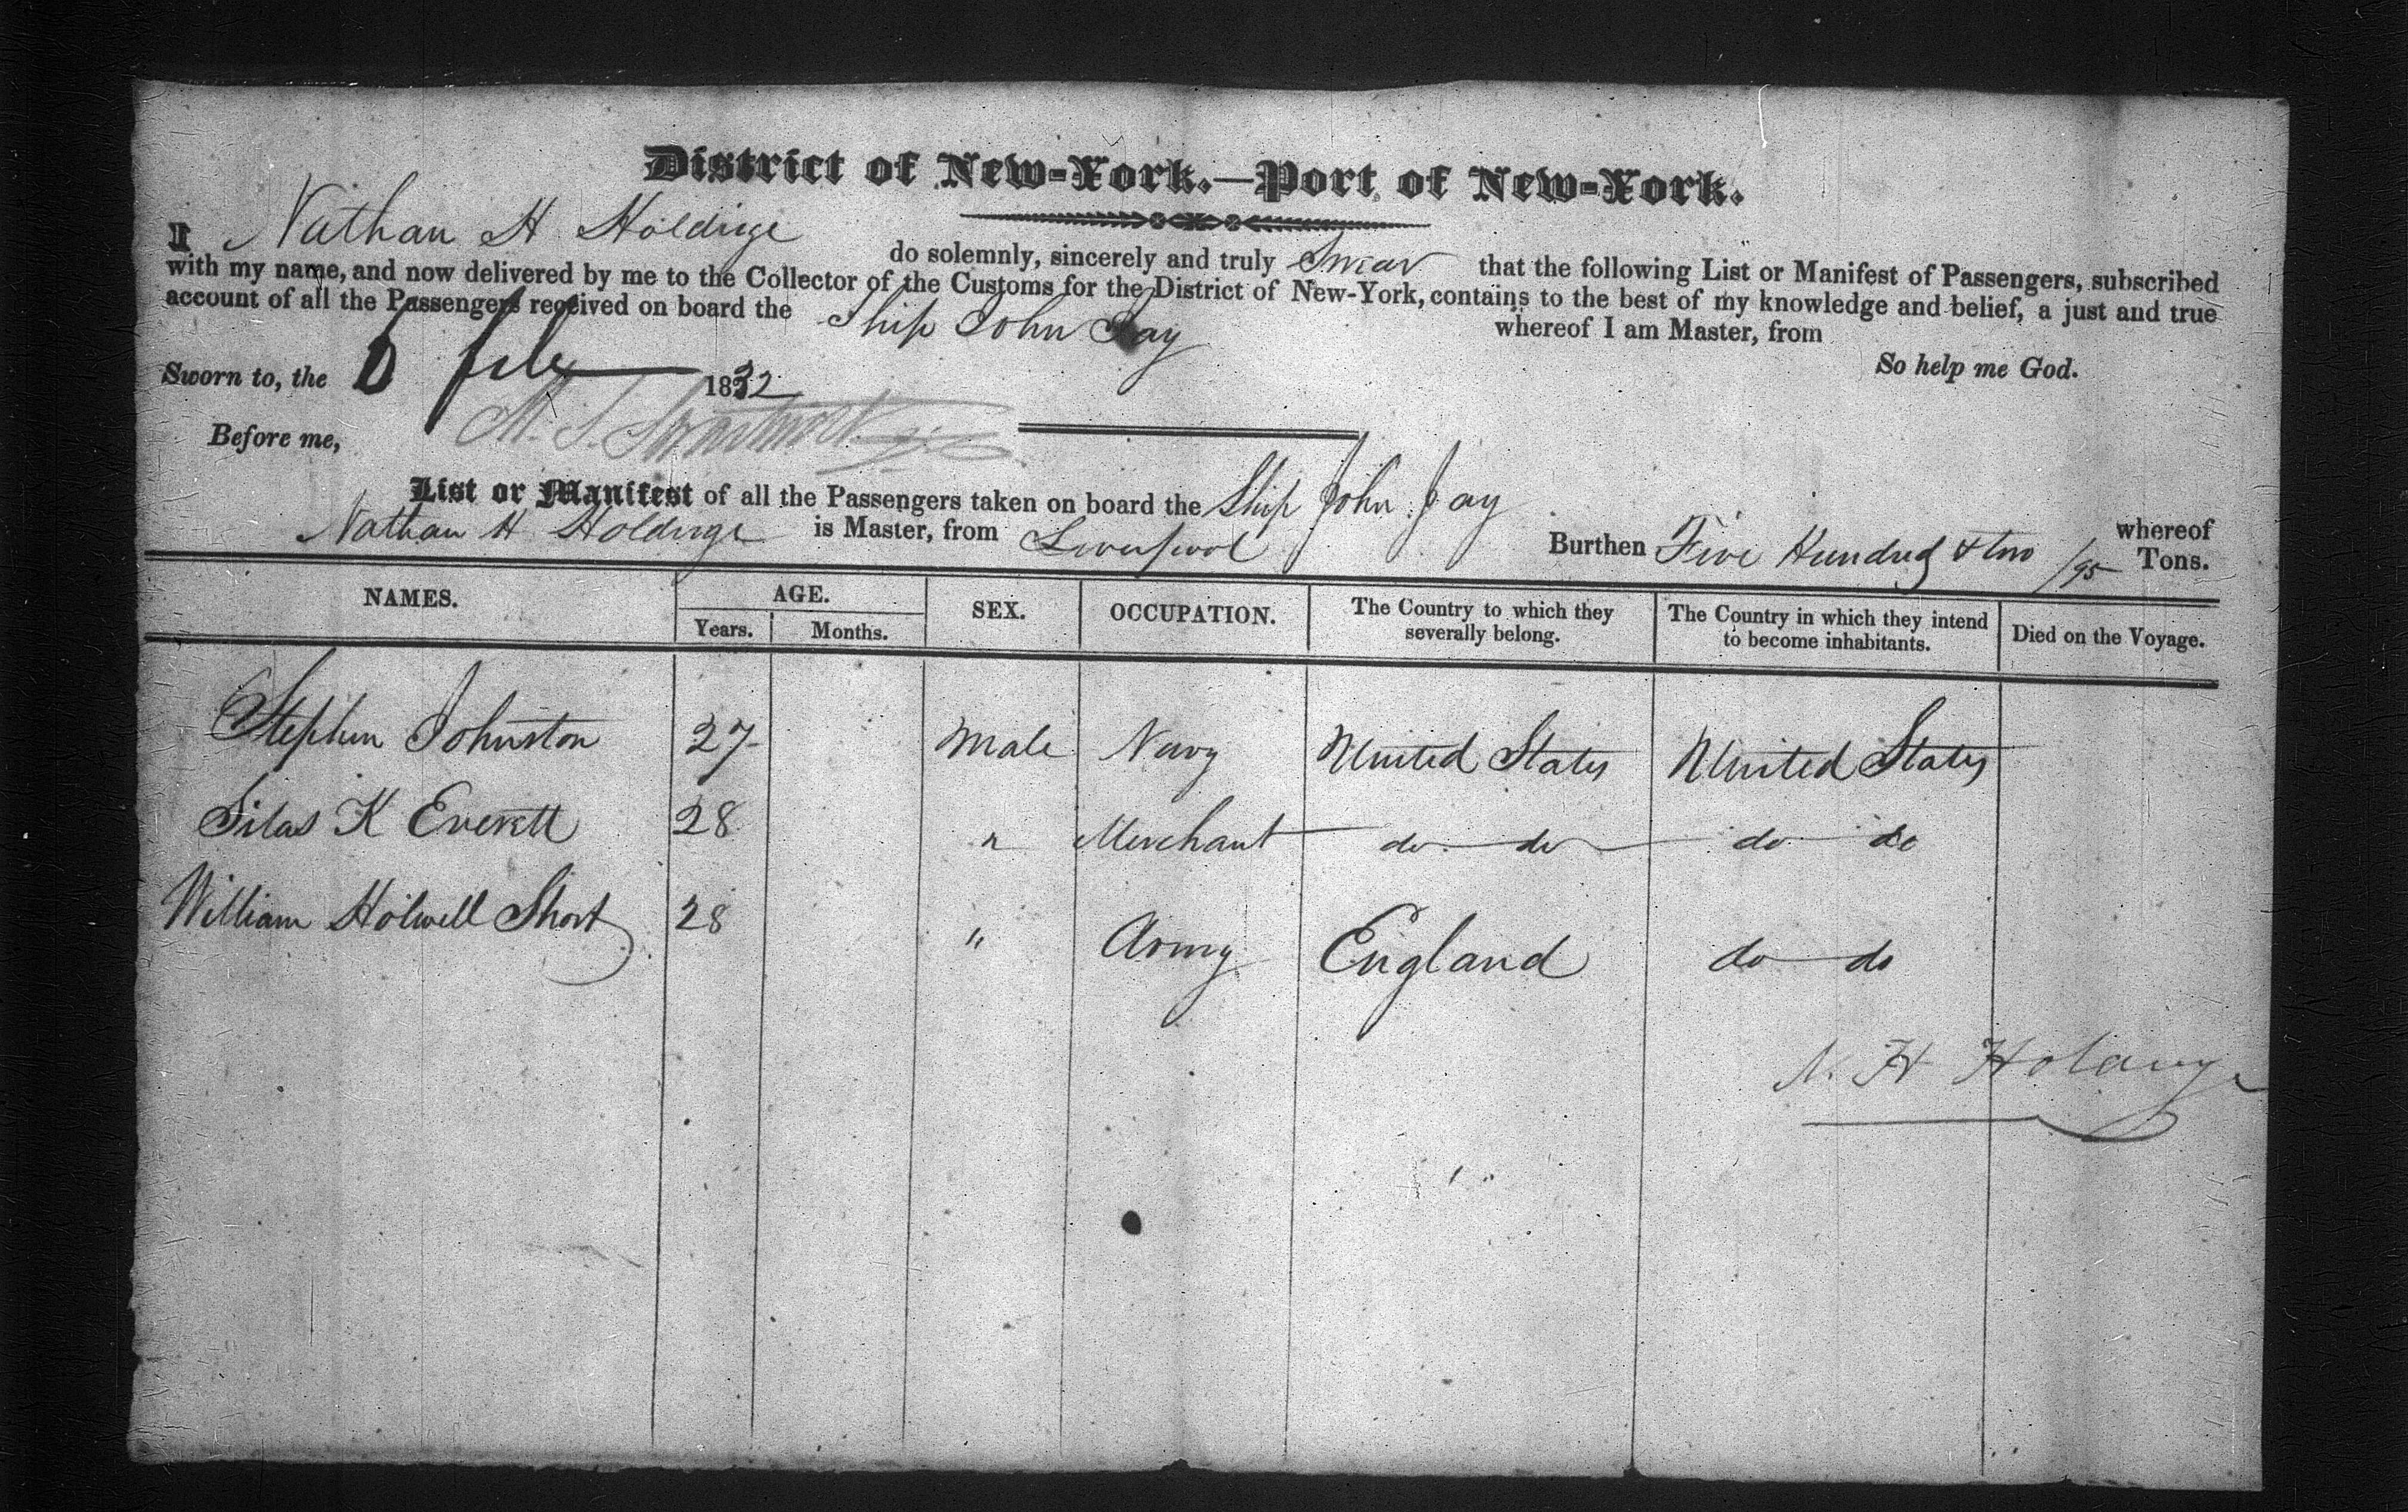 District of New-York.—Port of New-York.
I Nathan H Holdrege do solemnly, sincerely and truly Swear that the following List or Manifest of Passengers, subscribed
with my name, and now delivered by me to the Collector of the Customs for the District of New-York, contains to the best of my knowledge and belief, a just and true
account of all the Passengers received on board the Ship John Jay whereof I am Master, from
So help me God.
Sworn to, the 6 feb 1832
Before me,
List or Manifest of all the Passengers taken on board the Ship John Jay whereof
Nathan H Holdrege is Master, from Liverpool Burthen Five Hundred & two /95 Tons.
NAMES. AGE. SEX. OCCUPATION. The Country to which they severally belong. The Country in which they intend to become inhabitants. Died on the Voyage.
Years. Months.
Stephen Johnston 27 Male Navy United States United States
Silas K Everett 28 " Merchant do do do do
William Holwell Short 28 " Army England do do
N. H Holdrege